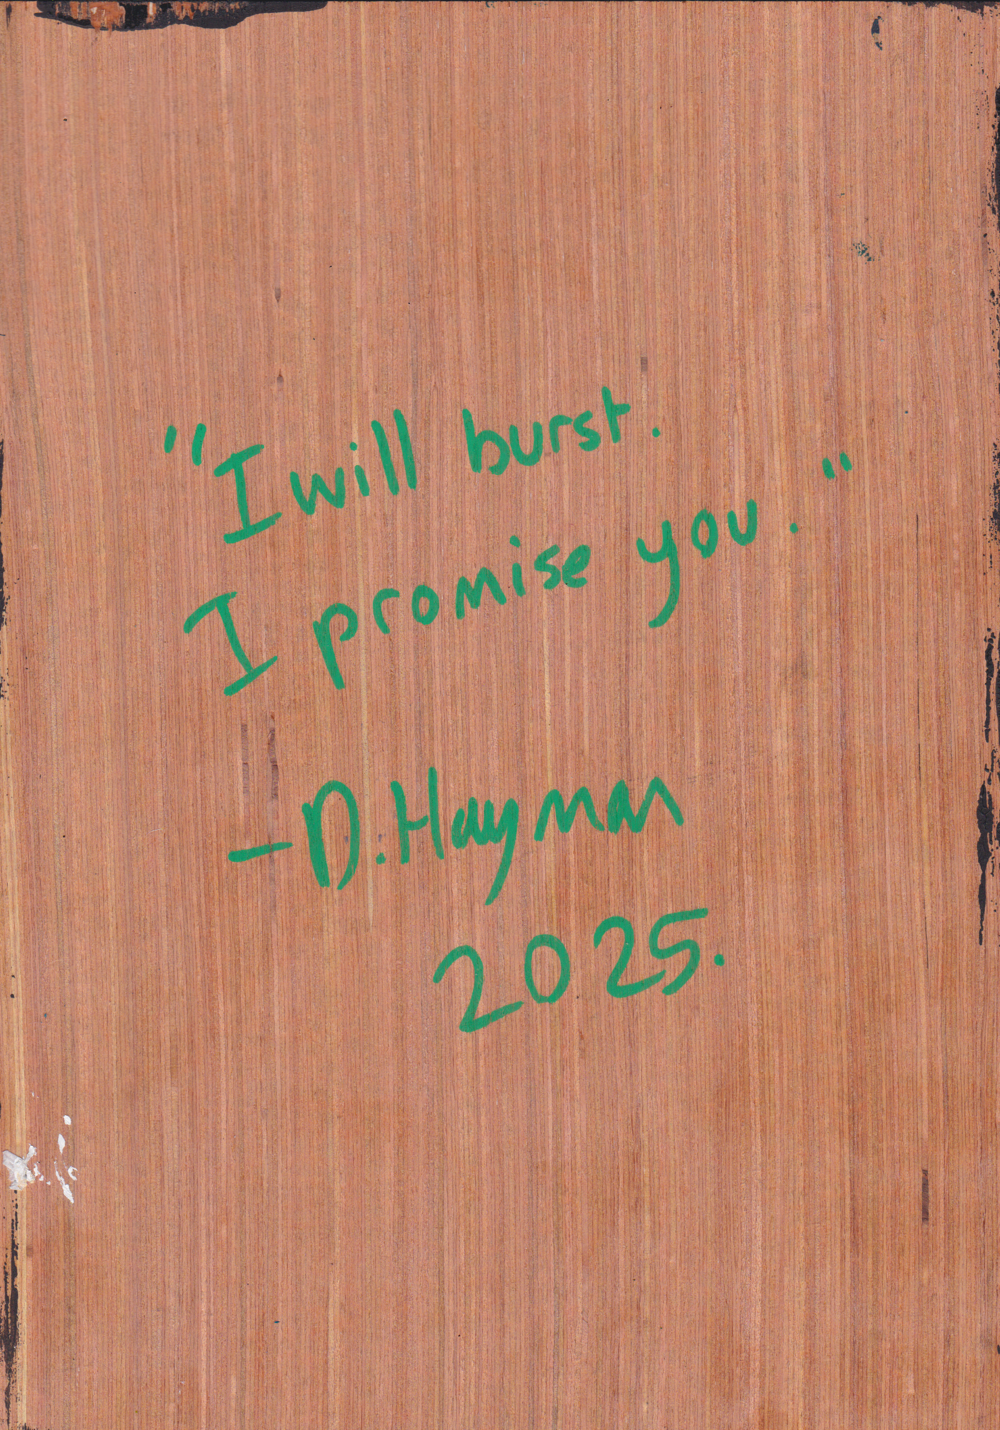 "I will burst.
I promise you."
-D. Hayman
2025.